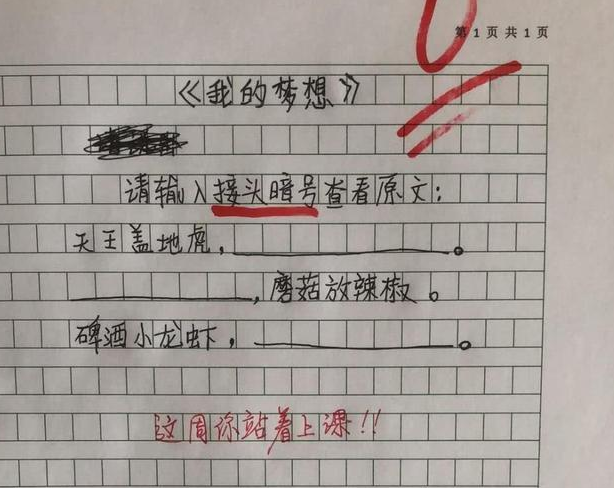 第 1 页 共 1 页
《我的梦想》
请输入接头暗号查看原文：
天王盖地虎，____________。
____________，磨菇放辣椒。
啤酒小龙虾，____________。
这周你站着上课!!